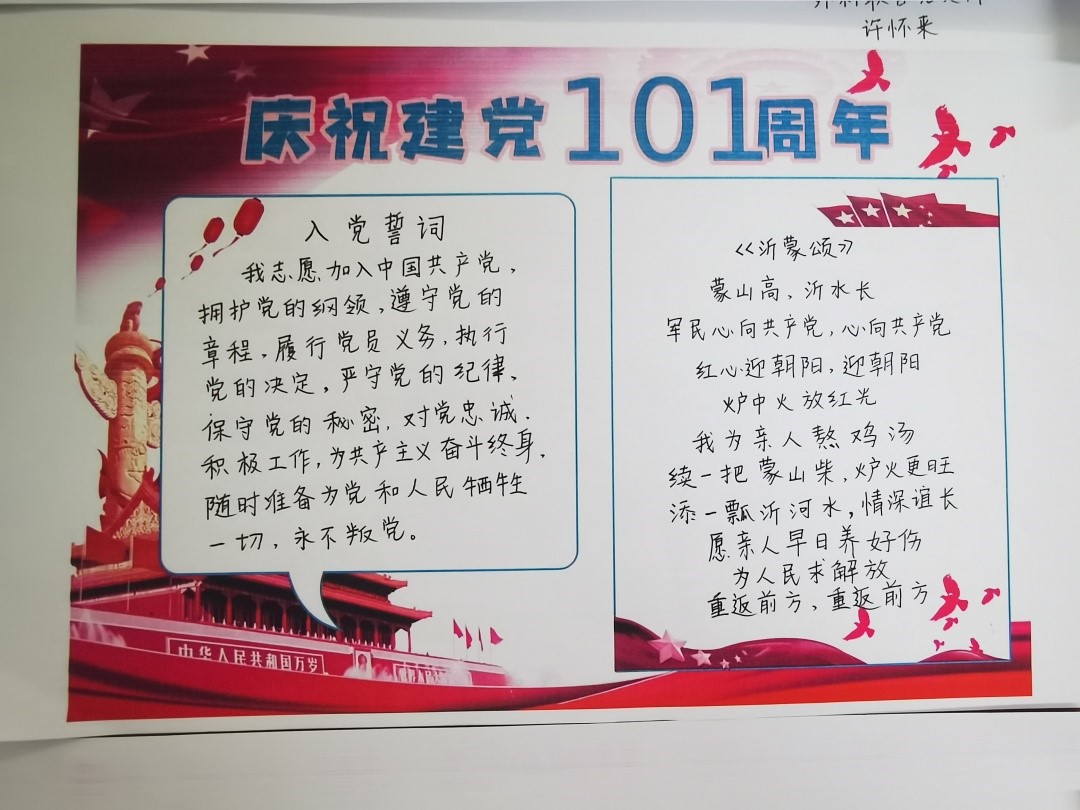 许怀来
庆祝建党101周年
入党誓词
我志愿加入中国共产党,
拥护党的纲领,遵守党的
章程,履行党员义务,执行
党的决定,严守党的纪律,
保守党的秘密,对党忠诚,
积极工作,为共产主义奋斗终身,
随时准备为党和人民牺牲
一切,永不叛党。
中华人民共和国万岁
《沂蒙颂》
蒙山高,沂水长
军民心向共产党,心向共产党
红心迎朝阳,迎朝阳
炉中火放红光
我为亲人熬鸡汤
续一把蒙山柴,炉火更旺
添一瓢沂河水,情深谊长
愿亲人早日养好伤
为人民求解放
重返前方,重返前方